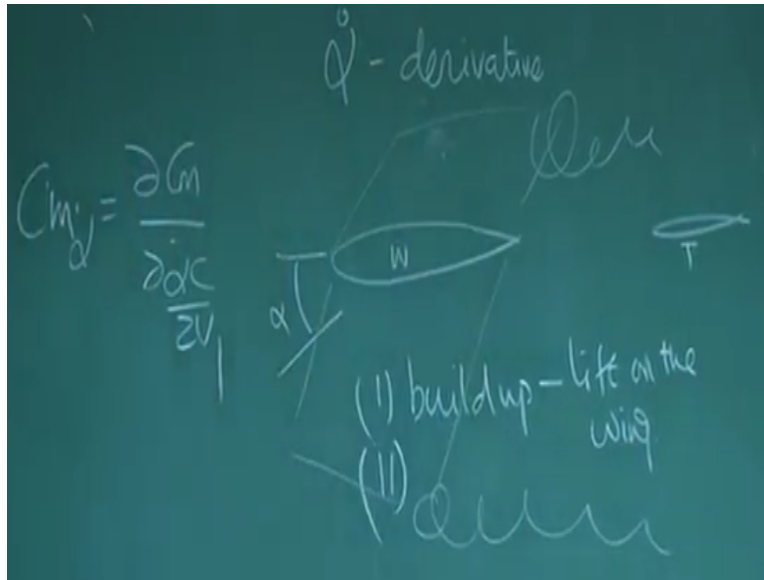 α̇ - derivative
Cmα̇ = ∂Cm
∂α̇c
2V
W
T
α
(I) buildup – lift on the
wing
(II)